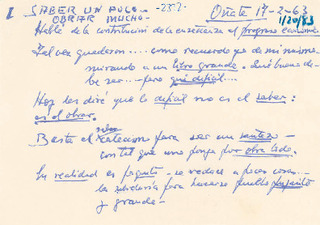 SABER UN POCO - 232.
OBRAR MUCHO -
Oñate 17-2-63
1/20/83
Hablé de la contribución de la enseñanza al progreso económico
Tal vez quedaron .... como recuerdo ya de mi mismo
mirando a un libro grande. Qué bueno de-
be ser -- pero qué difícil ...
Hoy les diré que lo difícil no es el saber:
es el obrar.
Basta el catecismo para ser un santo -
con tal que uno ponga por obra todo.
La realidad es - se reduce a pocas cosas...
la sabiduría para hacerse pueblo
y grande -